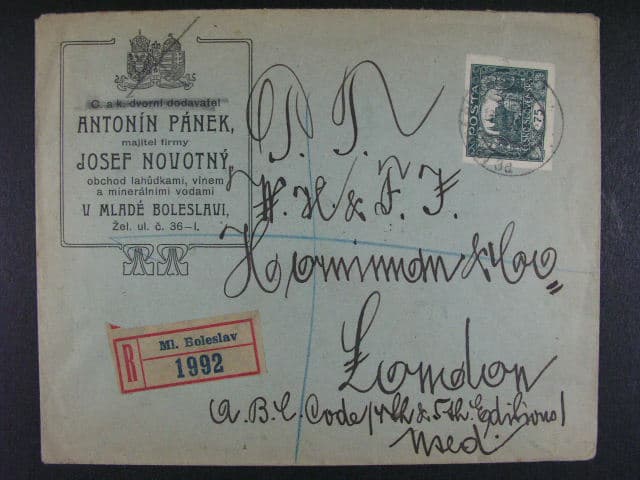 C. a k. dvorní dodavatel
ANTONÍN PÁNEK,
majitel firmy
JOSEF NOVOTNÝ,
obchod lahůdkami, vínem
a minerálními vodami
V MLADÉ BOLESLAVI,
Žel. ul. č. 36–I.
POŠTA
75
P. T.
W. H. & F. F.
Horniman & Co
London
A. B. C. Code/4th & 5th. Editions/
Used.
Ml. Boleslav
R 1992